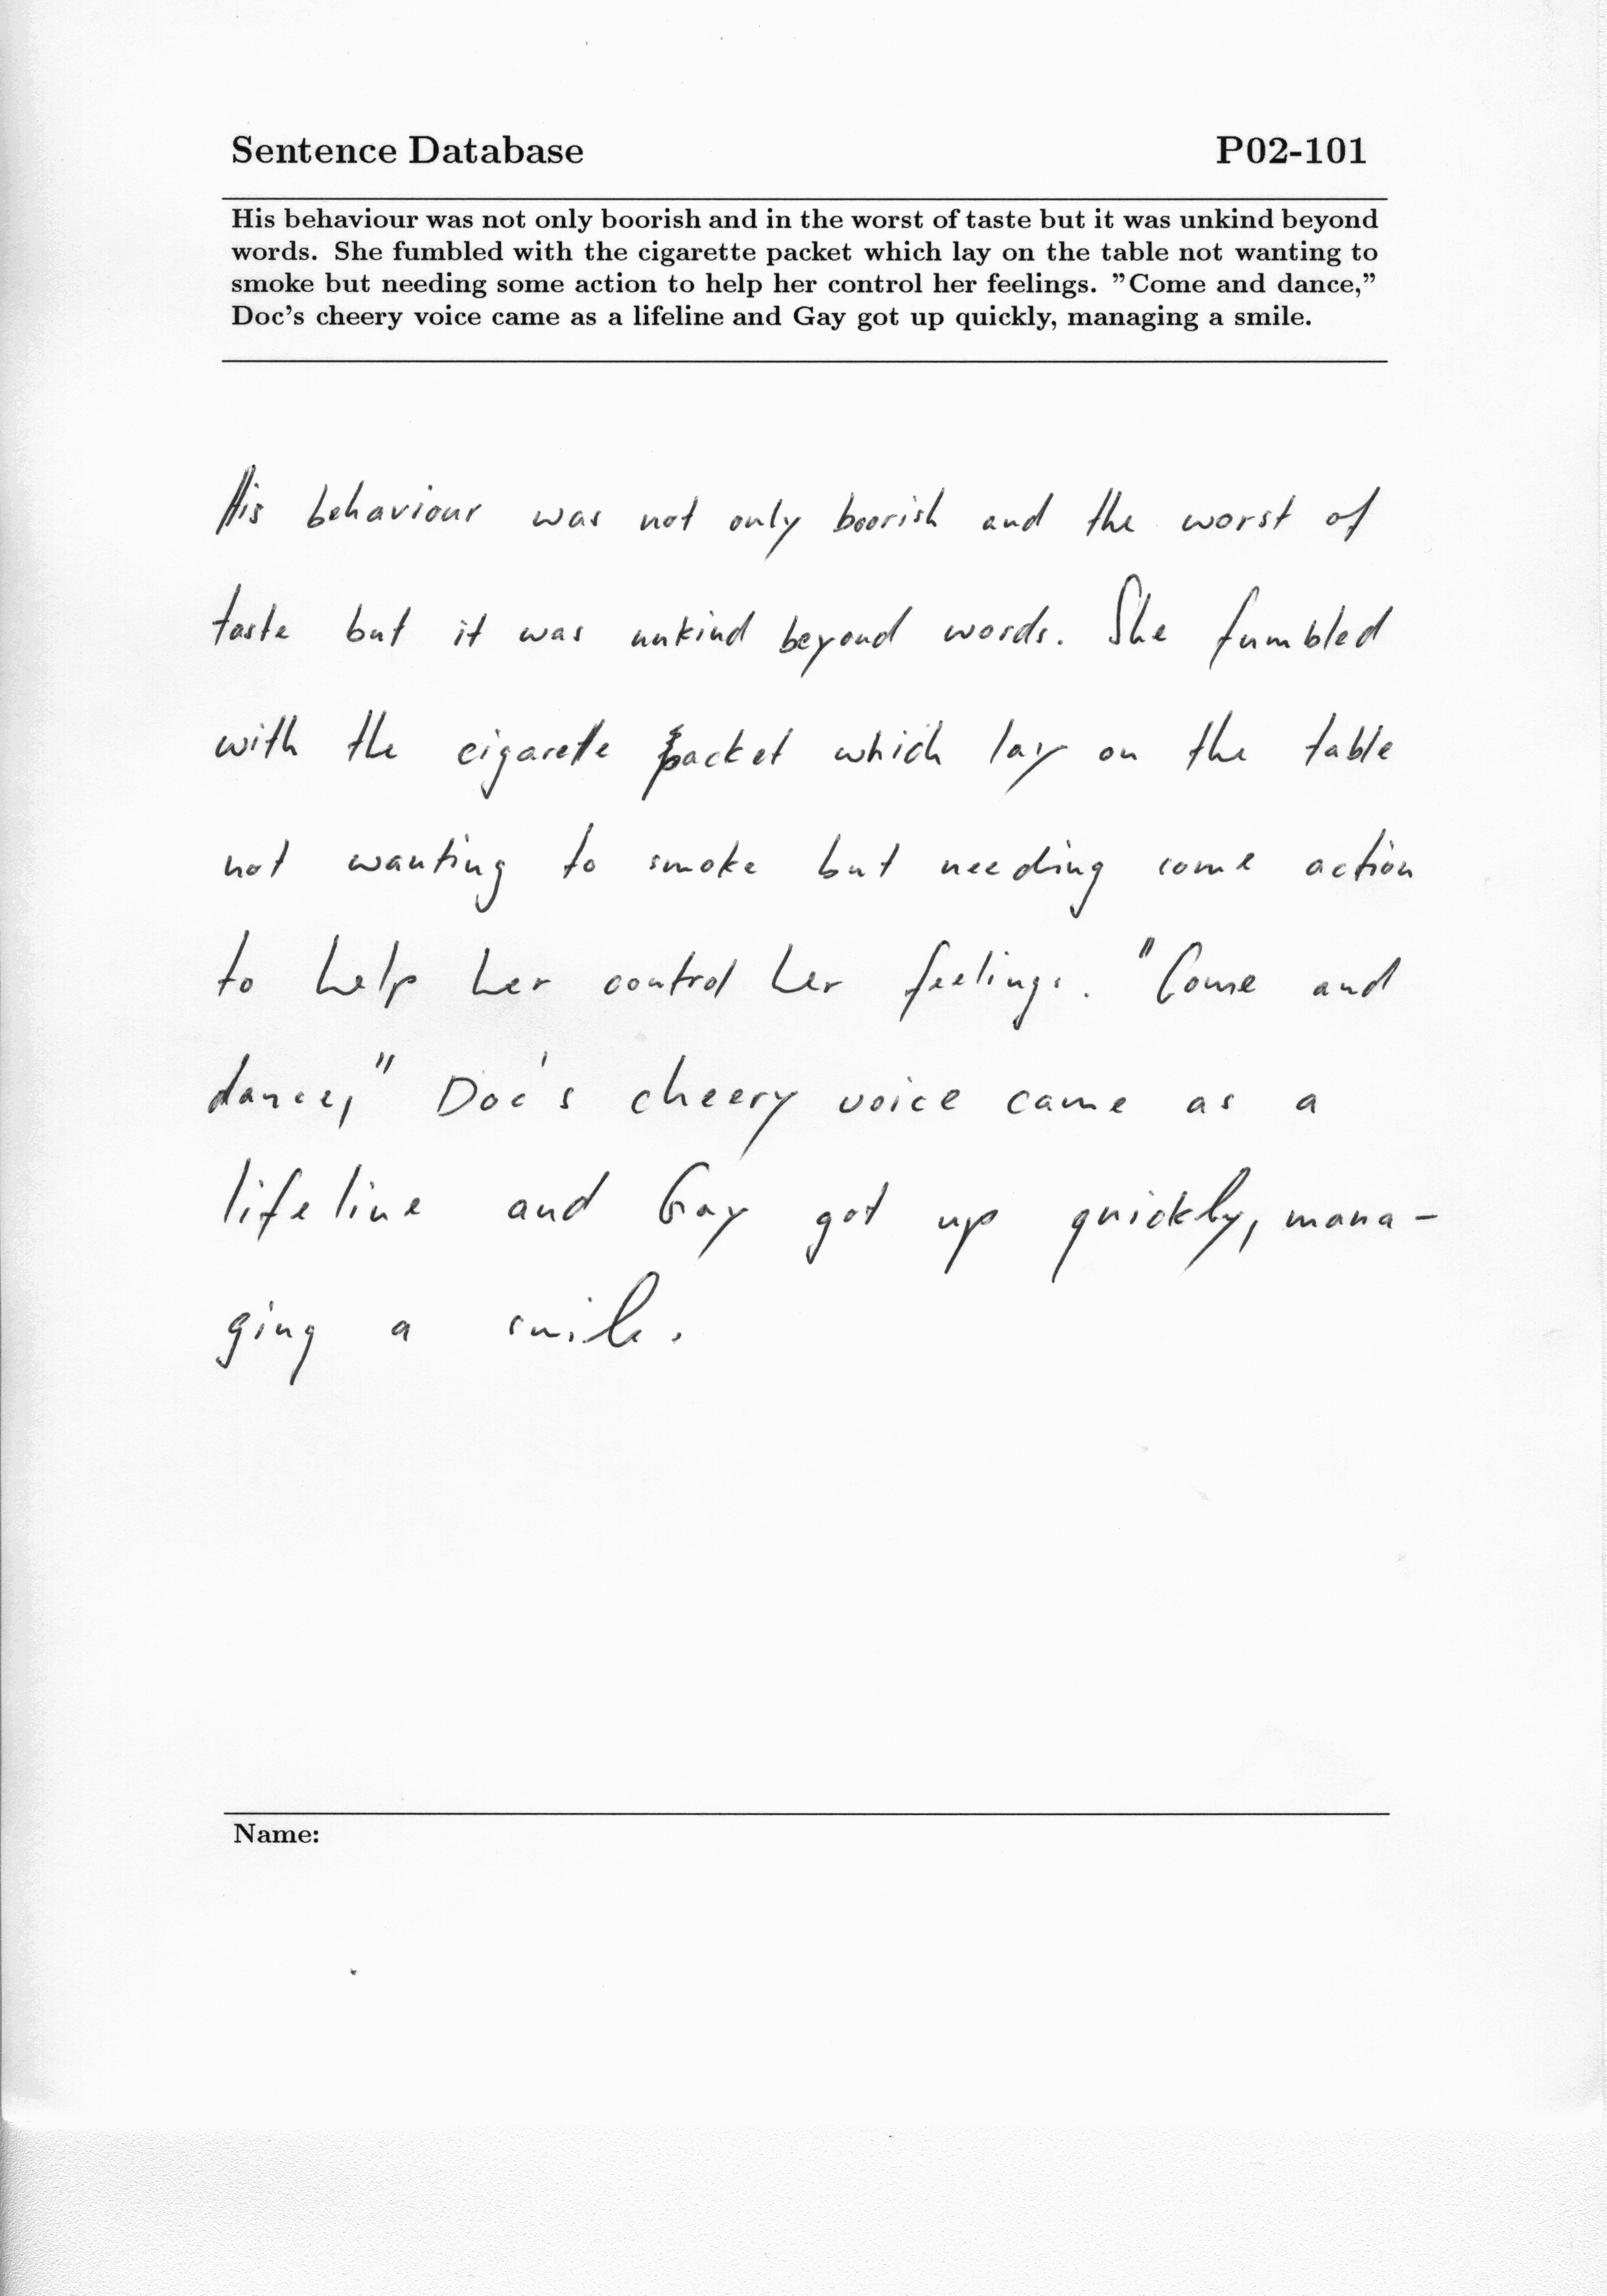 Sentence Database P02-101
His behaviour was not only boorish and in the worst of taste but it was unkind beyond
words. She fumbled with the cigarette packet which lay on the table not wanting to
smoke but needing some action to help her control her feelings. "Come and dance,"
Doc's cheery voice came as a lifeline and Gay got up quickly, managing a smile.
His behaviour was not only boorish and the worst of
taste but it was unkind beyond words. She fumbled
with the cigarette packet which lay on the table
not wanting to smoke but needing some action
to help her control her feelings. "Come and
dance," Doc's cheery voice came as a
lifeline and Gay got up quickly, mana-
ging a smile.
Name: